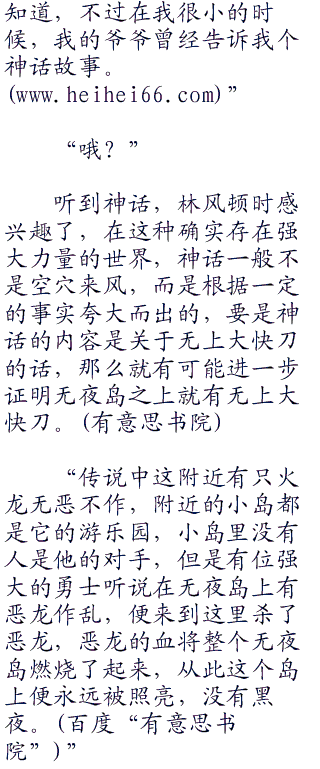 知道，不过在我很小的时
候，我的爷爷曾经告诉我个
神话故事。
(www.heihei66.com)”
“哦？”
听到神话，林风顿时感
兴趣了，在这种确实存在强
大力量的世界，神话一般不
是空穴来风，而是根据一定
的事实夸大而出的，要是神
话的内容是关于无上大快刀
的话，那么就有可能进一步
证明无夜岛之上就有无上大
快刀。(有意思书院)
“传说中这附近有只火
龙无恶不作，附近的小岛都
是它的游乐园，小岛里没有
人是他的对手，但是有位强
大的勇士听说在无夜岛上有
恶龙作乱，便来到这里杀了
恶龙，恶龙的血将整个无夜
岛燃烧了起来，从此这个岛
上便永远被照亮，没有黑
夜。(百度“有意思书
院”)”